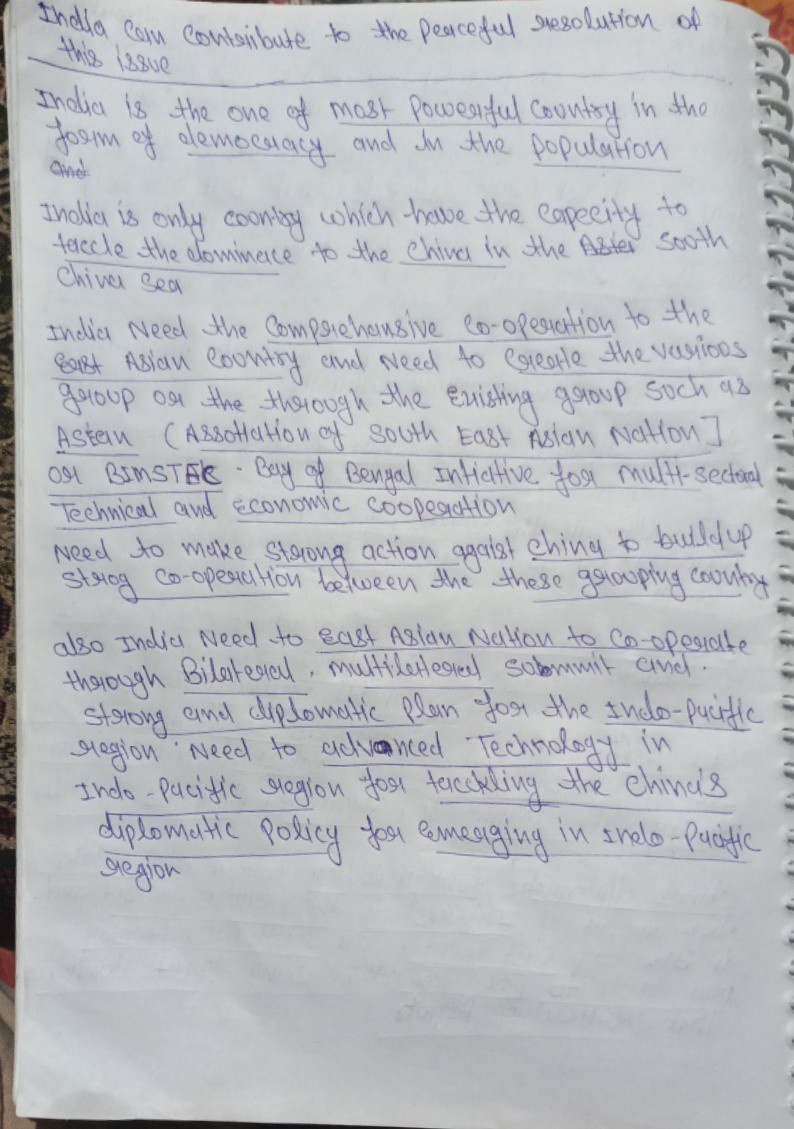 India can contribute to the peaceful resolution of
this issue
India is the one of most powerful country in the
form of democracy and in the population
and
India is only country which have the capecity to
taccle the dominece to the china in the Asia south
China sea
India Need the comprehansive co-operation to the
East Asian Country and need to create the various
group or the through the Existing group such as
Asean (Assotiation of South East Asian Nation]
or BIMSTEC - Bay of Bengal Intictive for multi-sectoral
Technical and Economic cooperation
Need to make strong action agaist china to buildup
strog co-operation between the these grouping country
also India Need to East Asian Nation to co-operate
through Bilateral, multilateral summit and
strong and diplomatic plan for the Indo-pacific
region Need to advanced Technology in
Indo-Pacific region for tacckling the China's
diplomatic policy for emerging in Indo-Pacific
region